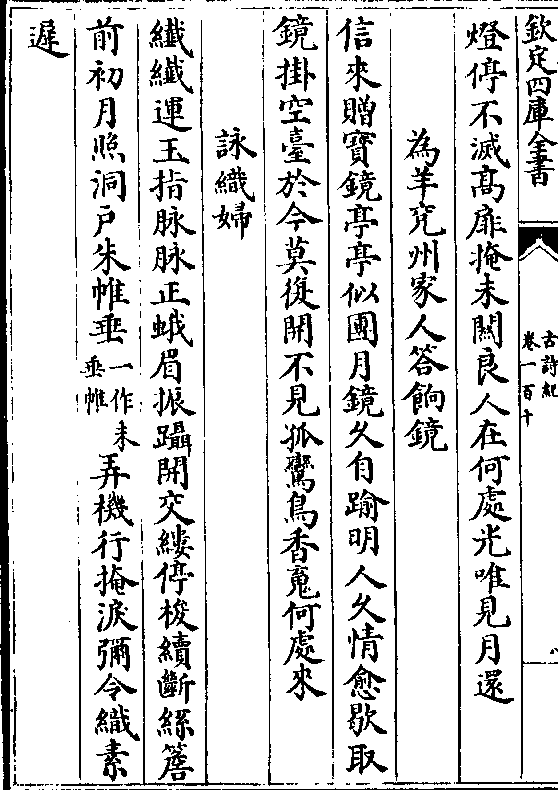 欽定四庫全書
古詩紀
卷一百十
八
燈停不滅髙扉掩未闗良人在何處光唯見月還
為羊兗州家人答餉鏡
信來贈寳鏡亭亭似團月鏡久自踰明人久情愈歇取
鏡掛空臺於今莫復開不見孤鸞鳥香䰟何處來
詠織婦
纎纎運玉指脉脉正蛾眉振躡開交縷停梭續斷絲簷
前初月照洞戸朱帷垂一作未垂帷弄機行掩淚彌令織素
遲